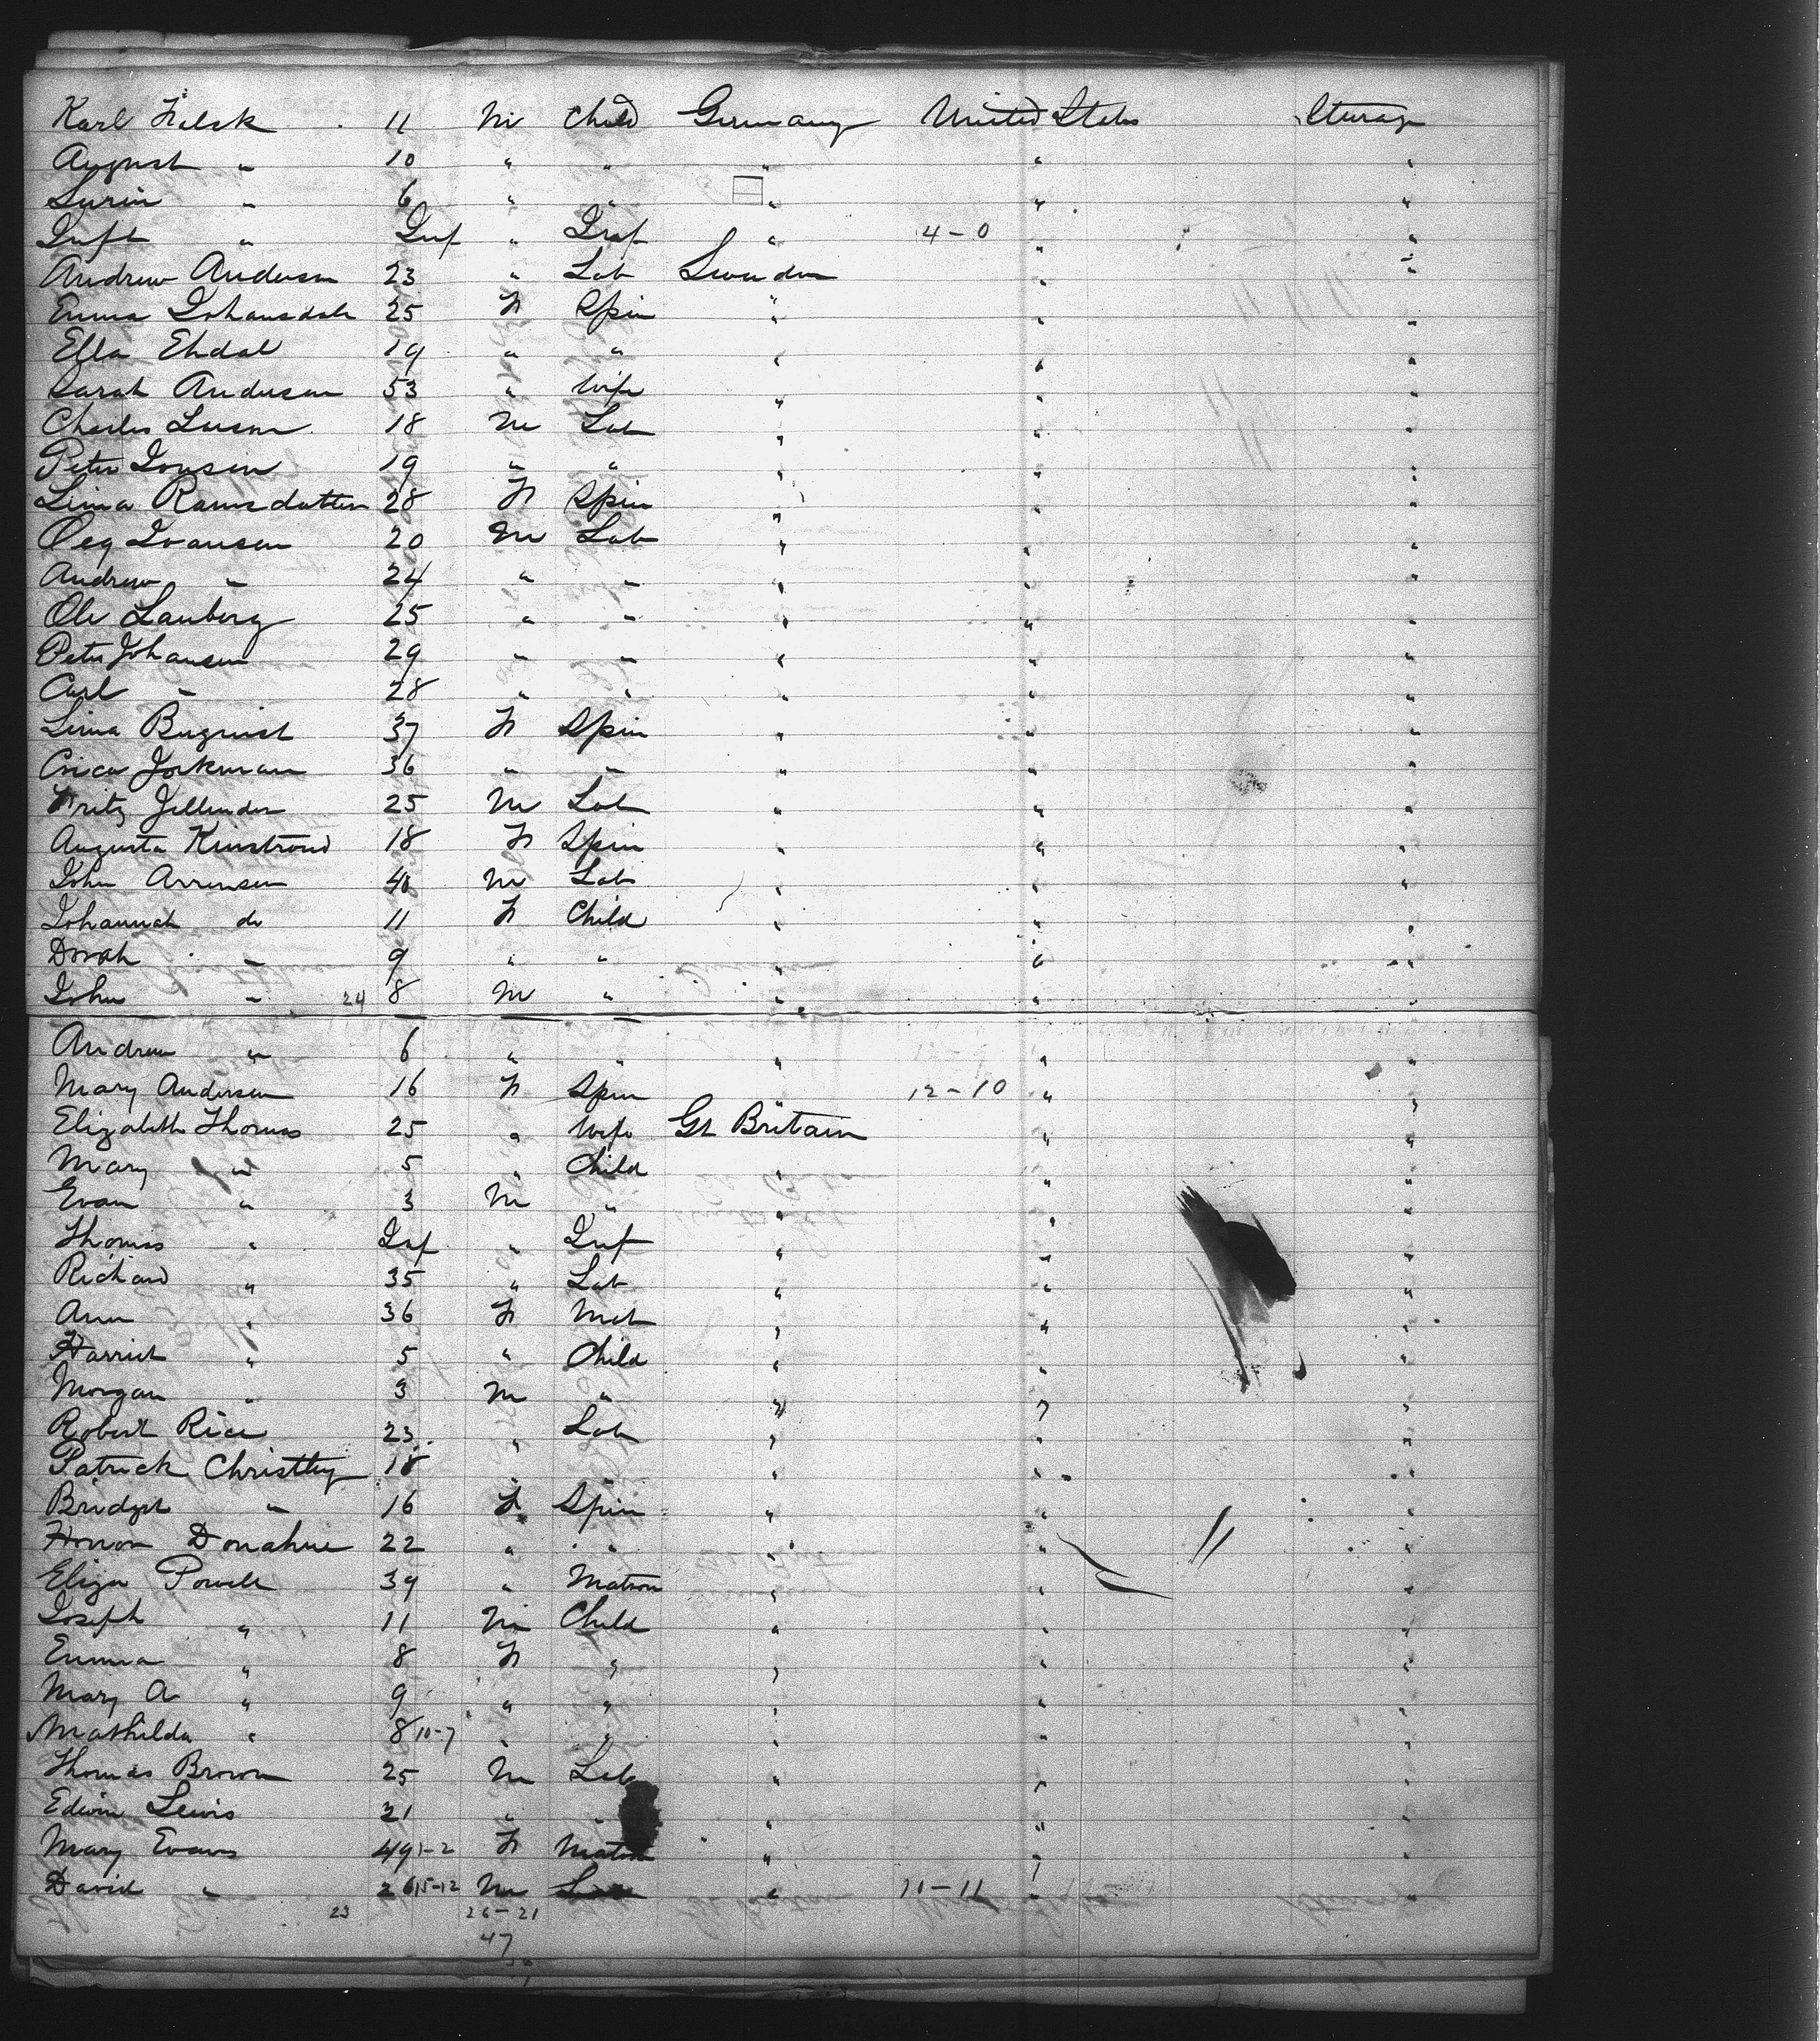 Karl Filsk 11 M Child Germany United States Sterage
August " 10 " " " " "
" 6 " " " " "
Inft " Inf " Inf " 4-0 " "
Andrew Anderson 23 " Lab Sweden " "
Emma Johansdate 25 F Spin " " "
Ella Ehdal 19 " " " " "
Sarah Anderson 53 " Wife " " "
Charles Larson 18 M Lab " " "
Peter Jonsen 19 " " " " "
Lina Ramsdatten 28 F Spin " " "
Oeg Ivansen 20 M Lab " " "
Andrew " 24 " " " " "
Ole Lanberg 25 " " " " "
Peter Johansen 29 " " " " "
Carl " 28 " " " " "
Lina Bugnist 37 F Spin " " "
Erica Jorkman 36 " " " " "
Fritz Jellender 25 M Lab " " "
Augusta Kinstrond 18 F Spin " " "
John Arrensen 40 M Lab " " "
Johannah do 11 F Child " " "
Dorah " 9 " " " " "
John " 24 8 M " " " "
Andrew " 6 " " " " "
Mary Andersen 16 F Spin " 12-10 " "
Elizabeth Thomas 25 " Wife Gt Britain " "
Mary " 5 " Child " " "
Evan " 3 M " " " "
Thomas " Inf " Inf " " "
Richard " 35 " Lab " " "
Ann " 36 F Mat " " "
Harriet " 5 " Child " " "
Morgan " 3 M " " " "
Robert Rice 23 " Lab " " "
Patrick Christley 18 " " "
Bridget " 16 F Spin " " "
Honor Donahue 22 " " " " "
Eliza Powell 39 " Matron " " "
Joseph " 11 M Child " " "
Emma " 8 F " " " "
Mary A " 9 " " " " "
Mathilda " 8 10-7 " " " " "
Thomas Brown 25 M Lab " " "
Edwin Lewis 21 " " " " "
Mary Evans 49 1-2 F Matron " " "
David " 26 15-12 M " 10-11 " "
23 26-21
47